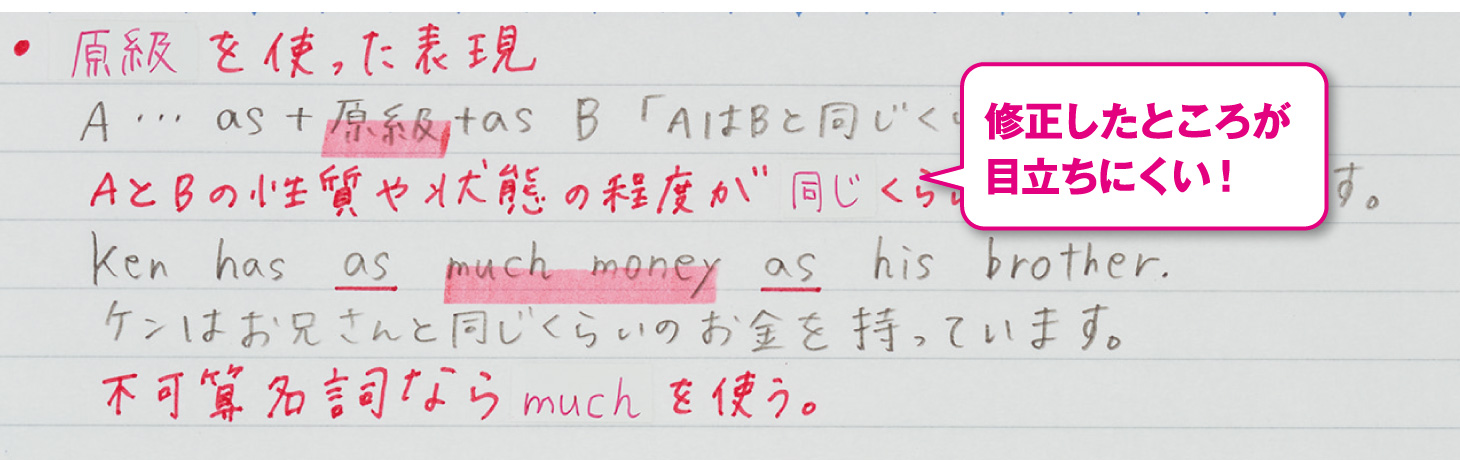 • 原級を使った表現
A … as + 原級 + as B 「AはBと同じく
AとBの性質や状態の程度が同じくら
す。
Ken has as much money as his brother.
ケンはお兄さんと同じくらいのお金を持っています。
不可算名詞ならmuchを使う。
修正したところが
目立ちにくい!